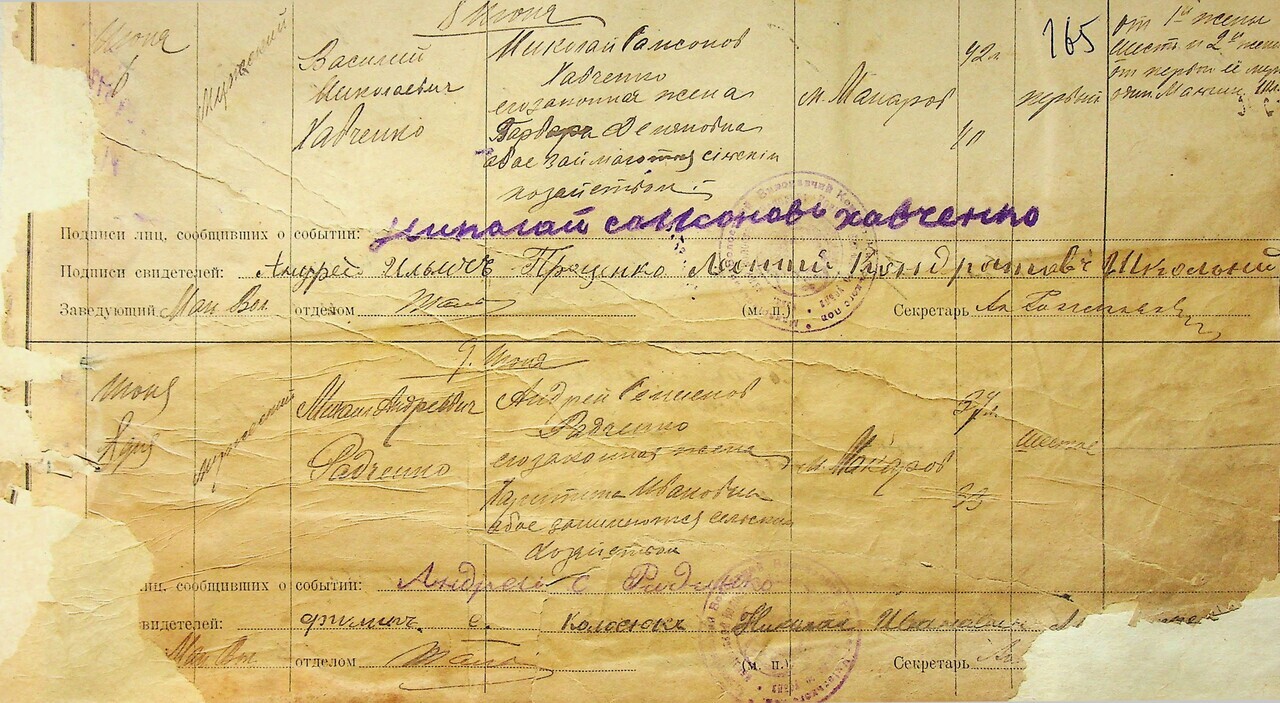 8 Июня
Июня
8
мужский
Василий
Николаевич
Хавченко
Николай Самсонов
Хавченко
его законная жена
Варвара Демяновна
обое займаются сельским
хозяйством
м. Макаров
42 л
40
первый
165
от 1й жены
шесть и 2й жены
от первого ея мужа
один
Подписи лиц, сообщивших о событии: Николай Самсоновъ Хавченко
Подписи свидетелей: Андрей Ильичъ Проценко Леонтий Кондратовичъ Школьний
Заведующий Мак Вол отделом (м. п.) Секретарь
9 Июня
Июня
мужский
Михаил Андреевич
Радченко
Андрей Семенов
Радченко
его законная жена
Ивановна
обое занимаются сельским
хозяйством
м. Макаров
37 л
33
шестое
лиц, сообщивших о событии: Андрей С Радченко
свидетелей: Филипп С. Колосюкъ Николай
Мак Вол отделом (м. п.) Секретарь